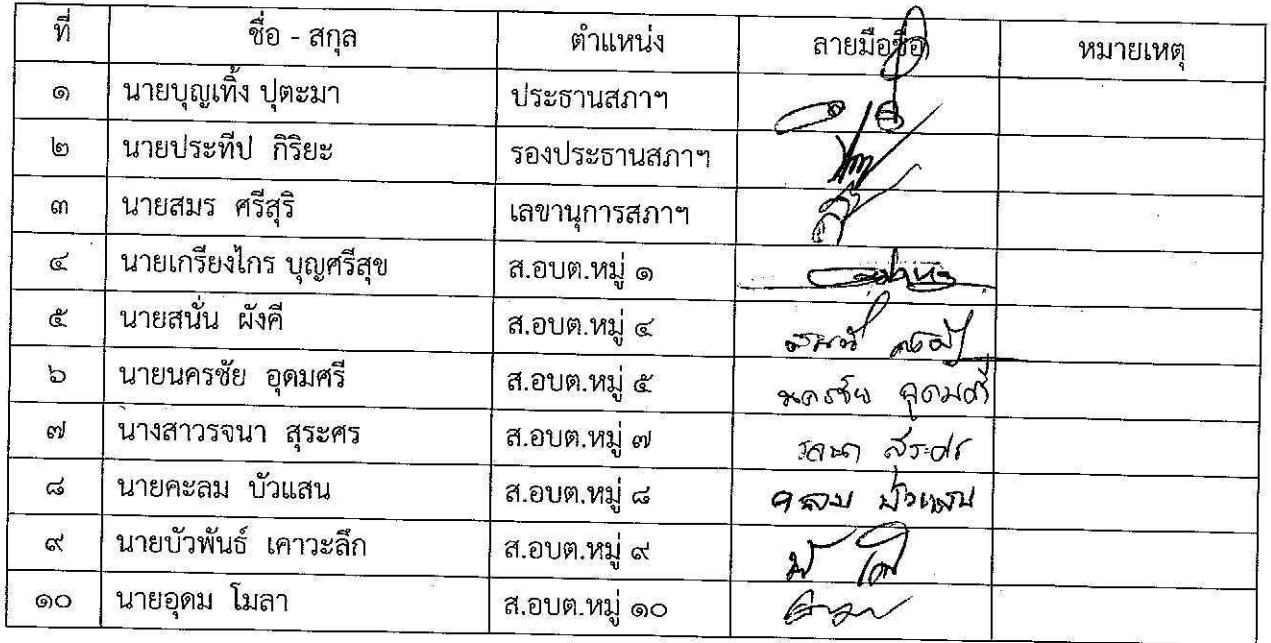 ที่ ชื่อ - สกุล ตำแหน่ง ลายมือชื่อ หมายเหตุ
๑ นายบุญเทิ้ง ปุตะมา ประธานสภาฯ
๒ นายประทีป กิริยะ รองประธานสภาฯ
๓ นายสมร ศรีสุริ เลขานุการสภาฯ
๔ นายเกรียงไกร บุญศรีสุข ส.อบต.หมู่ ๑
๕ นายสนั่น ผังคี ส.อบต.หมู่ ๔
๖ นายนครชัย อุดมศรี ส.อบต.หมู่ ๕ นครชัย อุดมศรี
๗ นางสาวรจนา สุระศร ส.อบต.หมู่ ๗ รจนา สุระศร
๘ นายคะลม บัวแสน ส.อบต.หมู่ ๘ คะลม บัวแสน
๙ นายบัวพันธ์ เคาวะลึก ส.อบต.หมู่ ๙
๑๐ นายอุดม โมลา ส.อบต.หมู่ ๑๐